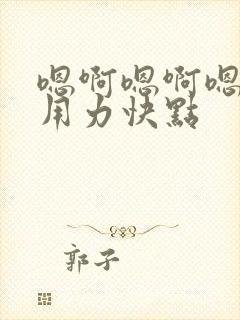 嗯啊嗯啊嗯
用力快點
郭子